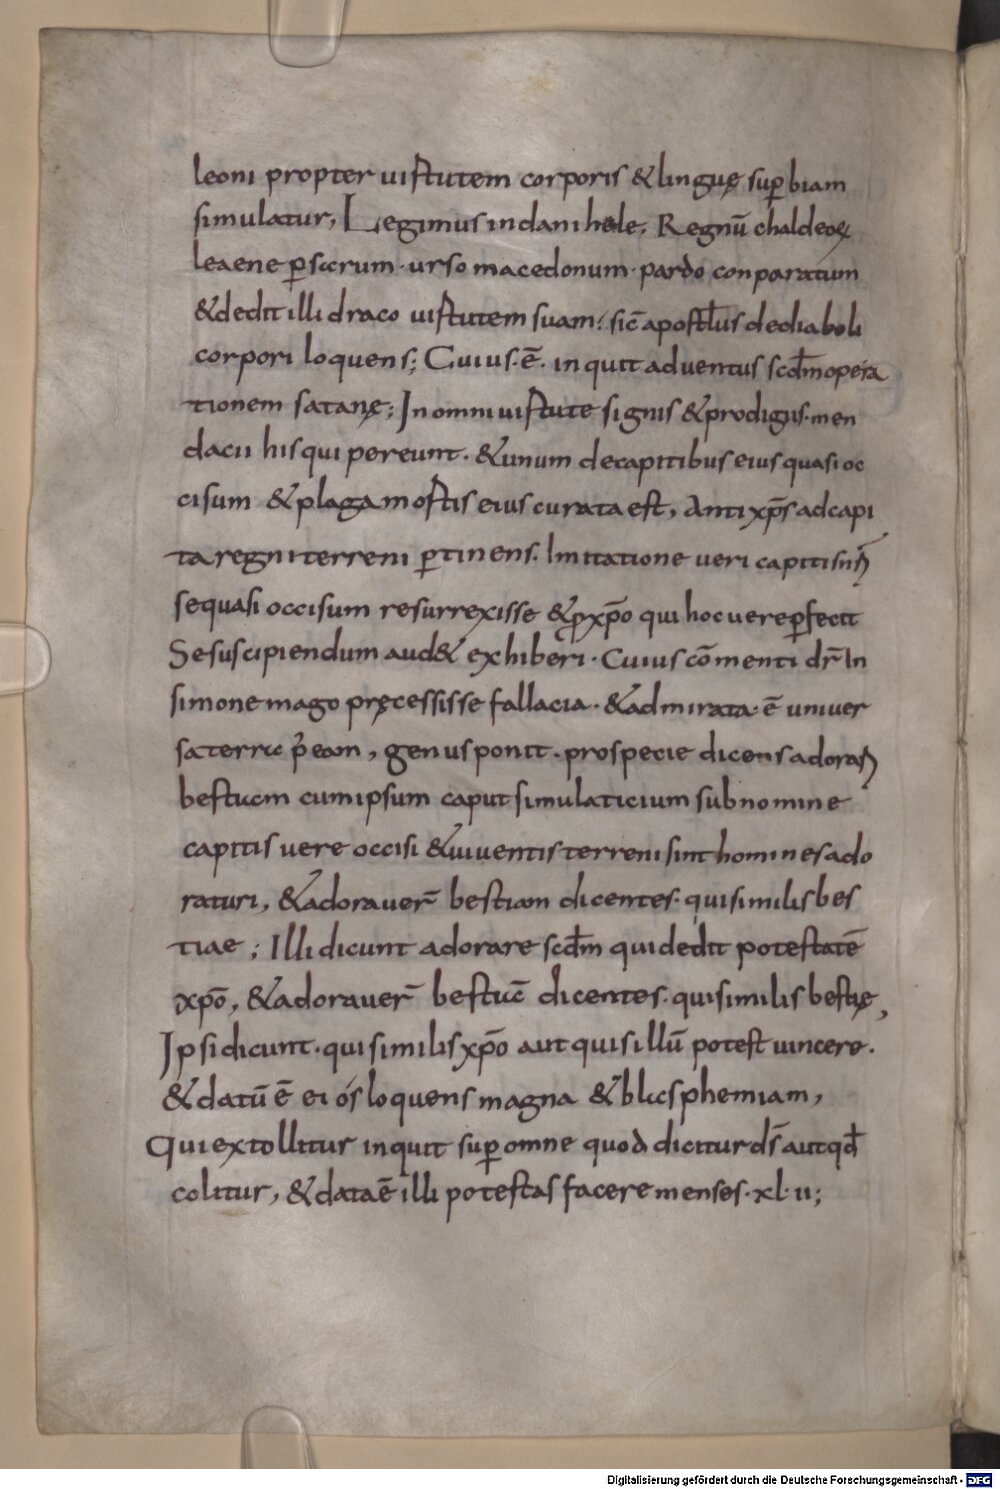 leoni propter uirtutem corporis & linguę suꝑbiam
simulatur, Legimus indanihele, Regnū chaldeoꝝ
leaene ꝑsarum · urso macedonum · pardo conparatum
&dedit illi draco uirtutem suam; sic̄ apostl̄us dediaboli
corpori loquens; Cuius · ē · inquit aduentus scd̄m opera
tionem satanę; Inomni uirtute signis & prodigiis · men
dacii his qui pereunt · & unum decapitibus eius quasi oc
cisum & plaga mortis eius curata est, Anti xp̄s adcapi
ta regni terreni ꝑtinens. Imitatione ueri capitis nr̄i
sequasi occisum resurrexisse & ꝓ xp̄o qui hoc uere ꝑfecit
Se suscipiendum aud& exhiberi · Cuius cōmenti dr̄ In
simone mago pręcessisse fallacia · & admirata · ē uniuer
sa terra p̄ eam, genus ponit · pro specie dicens adorañ
bestiam cum ipsum caput simulaticium sub nomine
capitis uere occisi & uiuentis terreni sint homines ado
raturi, & adorauer̄ bestiam dicentes · qui similis bes
tiae; Illi dicunt adorare scd̄m qui dedit potestatē
xp̄o, & adorauer̄ bestiā dicentes · qui similis bestię,
Ipsi dicunt · qui similis xp̄o aut quis illū potest uincere ·
& datū ē ei ós loquens magna & blasphemiam,
Qui extollitur inquit suꝑ omne quod dicitur ds̄ aut qd̄
colitur, & data ē illi potestas facere menses · xl · ii;
Digitalisierung gefördert durch die Deutsche Forschungsgemeinschaft - DFG